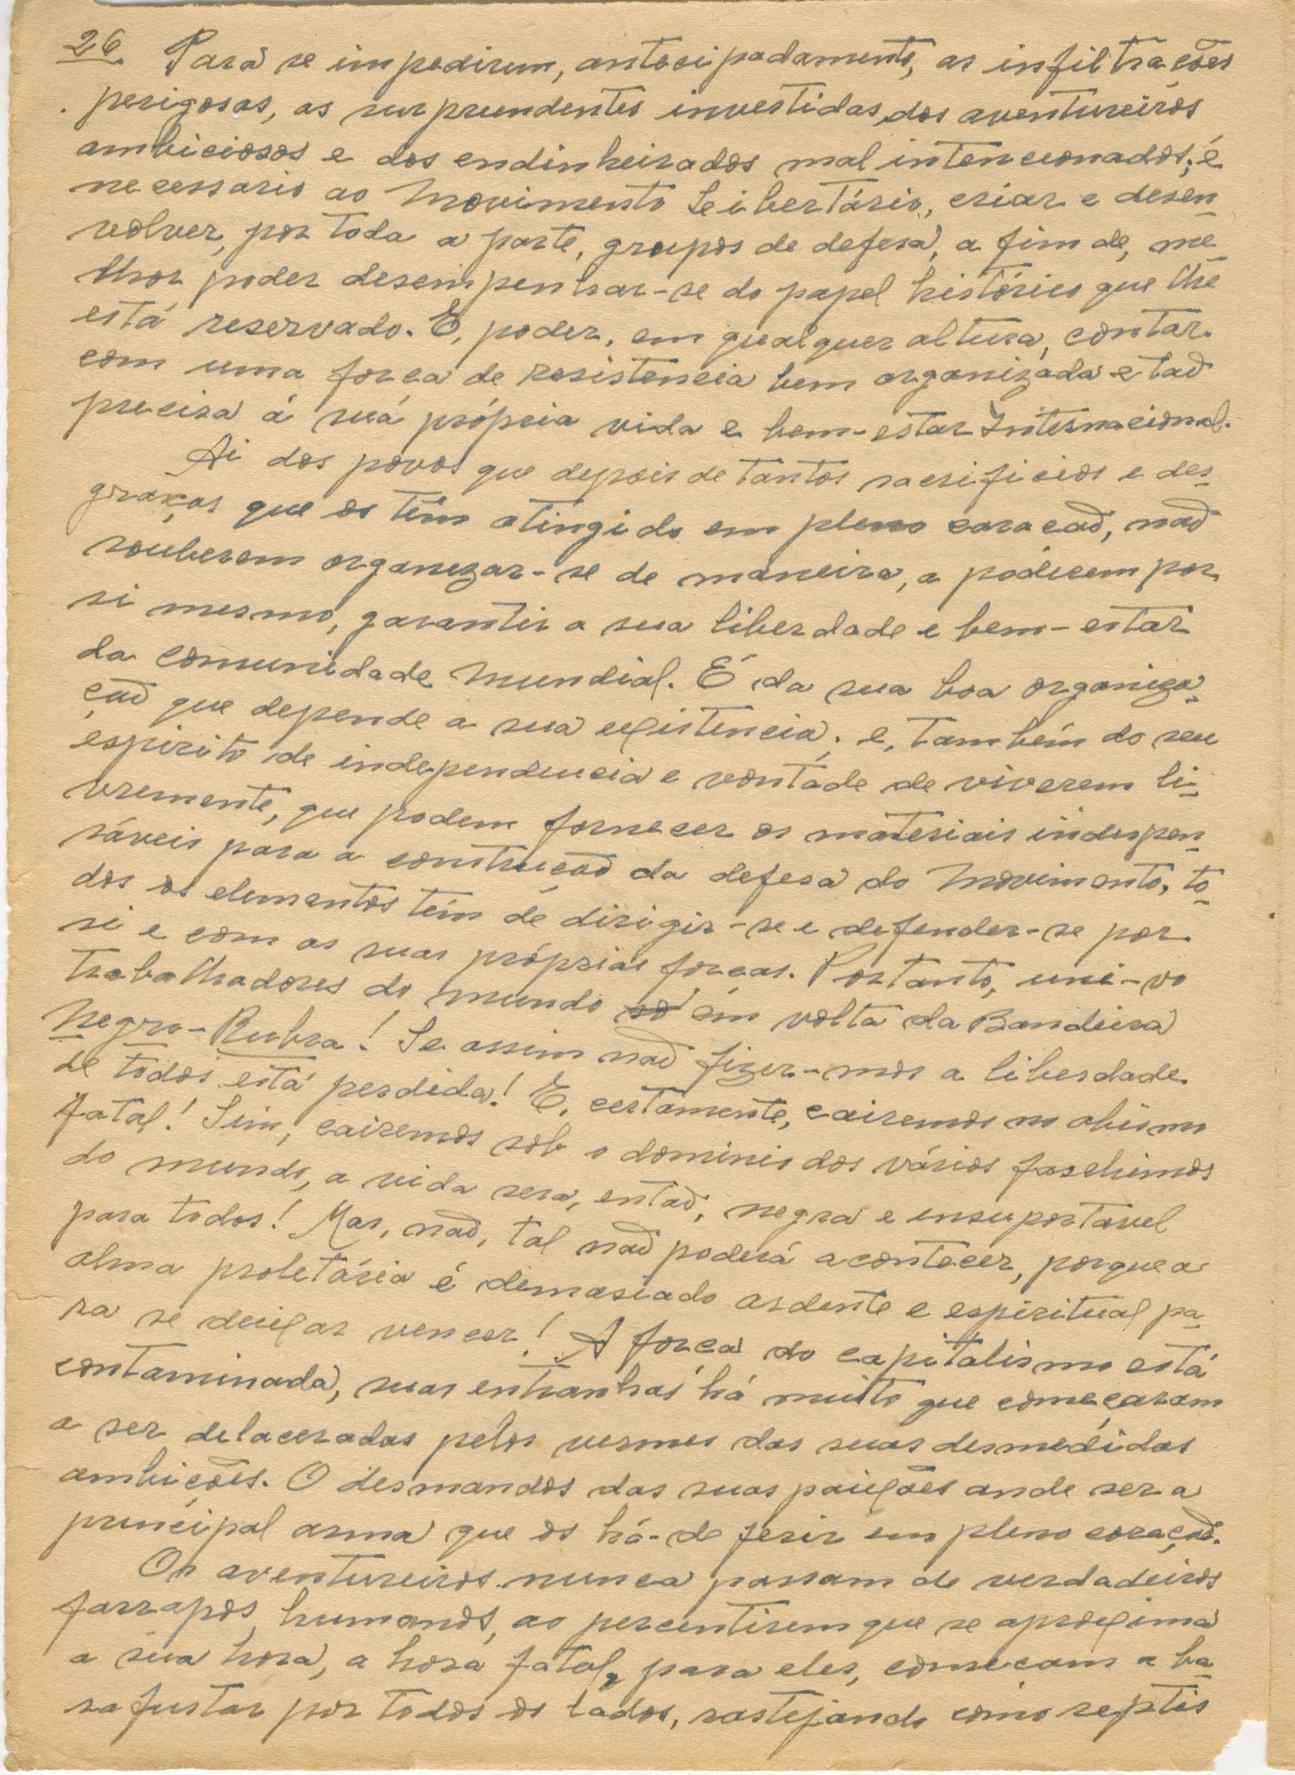 26. Para se impedirem, antecipadamente, as infiltrações
perigosas, as surpreendentes investidas dos aventureiros
ambiciosos e dos endinheirados mal intencionados; é
necessario ao Movimento Leibertário, criar e desen-
volver, por toda a parte, grupos de defesa, a fim de, me-
lhor poder desempenhar-se do papel histórico que lhe
está reservado. E, poder, em qualquer altura, contar
com uma força de resistencia bem organizada e tão
precisa á suá própria vida e bem-estar Internacional.
Ai dos povos que depois de tantos sacrificios e des-
graças que os têm atingido em pleno coração, não
souberem organizar-se de maneira, a podérem por
si mesmo, garantir a sua liberdade e bem-estar
da comunidade Mundial. É da sua boa organiza-
ção que depende a sua existência; e, também do seu
espirito de independencia e vontade de viverem li-
vremente, que podem fornecer os materiais indespen-
sáveis para a construção da defesa do Movimento, to-
dos os elementos têm de dirigir-se e defender-se por
si e com as suas próprias forças. Portanto, uni-vo
trabalhadores do mundo em volta da Bandeira
Negro-Rubra! Se assim não fizer-mos a liberdade
de todos está perdida! E, certamente, cairemos no abismo
fatal! Sim, cairemos sob o dominio dos vários faschimos
do mundo, a vida sera, então, negra e insuportavel
para todos! Mas, não, tal não poderá acontecer, porque a
alma proletária é demasiado ardente e espiritual pa-
ra se deixar vencer! A força do capitalismo está
contaminada, suas entranhas há muito que começaram
a ser delaceradas pelos vermes das suas desmedidas
ambições. O desmandos das suas paixões ande ser a
principal arma que os há-de ferir em pleno coração.
Os aventureiros nunca passam de verdadeiros
farrapos humanos, ao percentirem que se aproxima
a sua hora, a hora fatal, para eles, começam a ba-
rafustar por todos os lados, rastejando como reptis